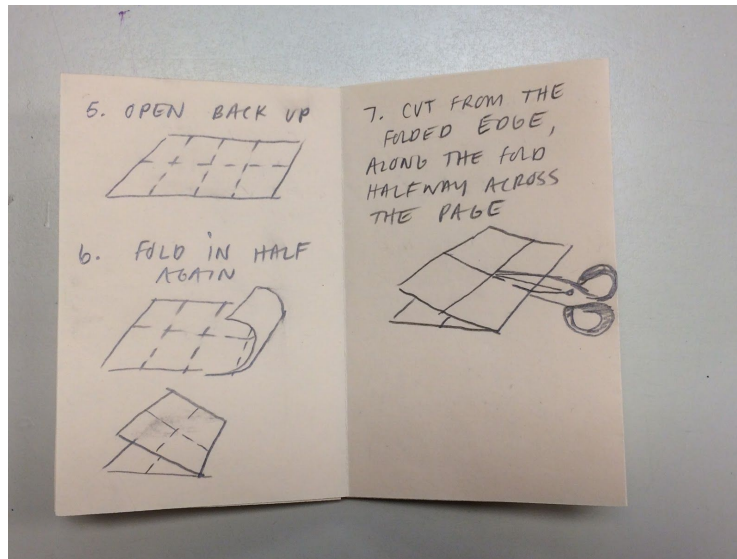 5. OPEN BACK UP
6. FOLD IN HALF
AGAIN
7. CUT FROM THE
FOLDED EDGE,
ALONG THE FOLD
HALFWAY ACROSS
THE PAGE